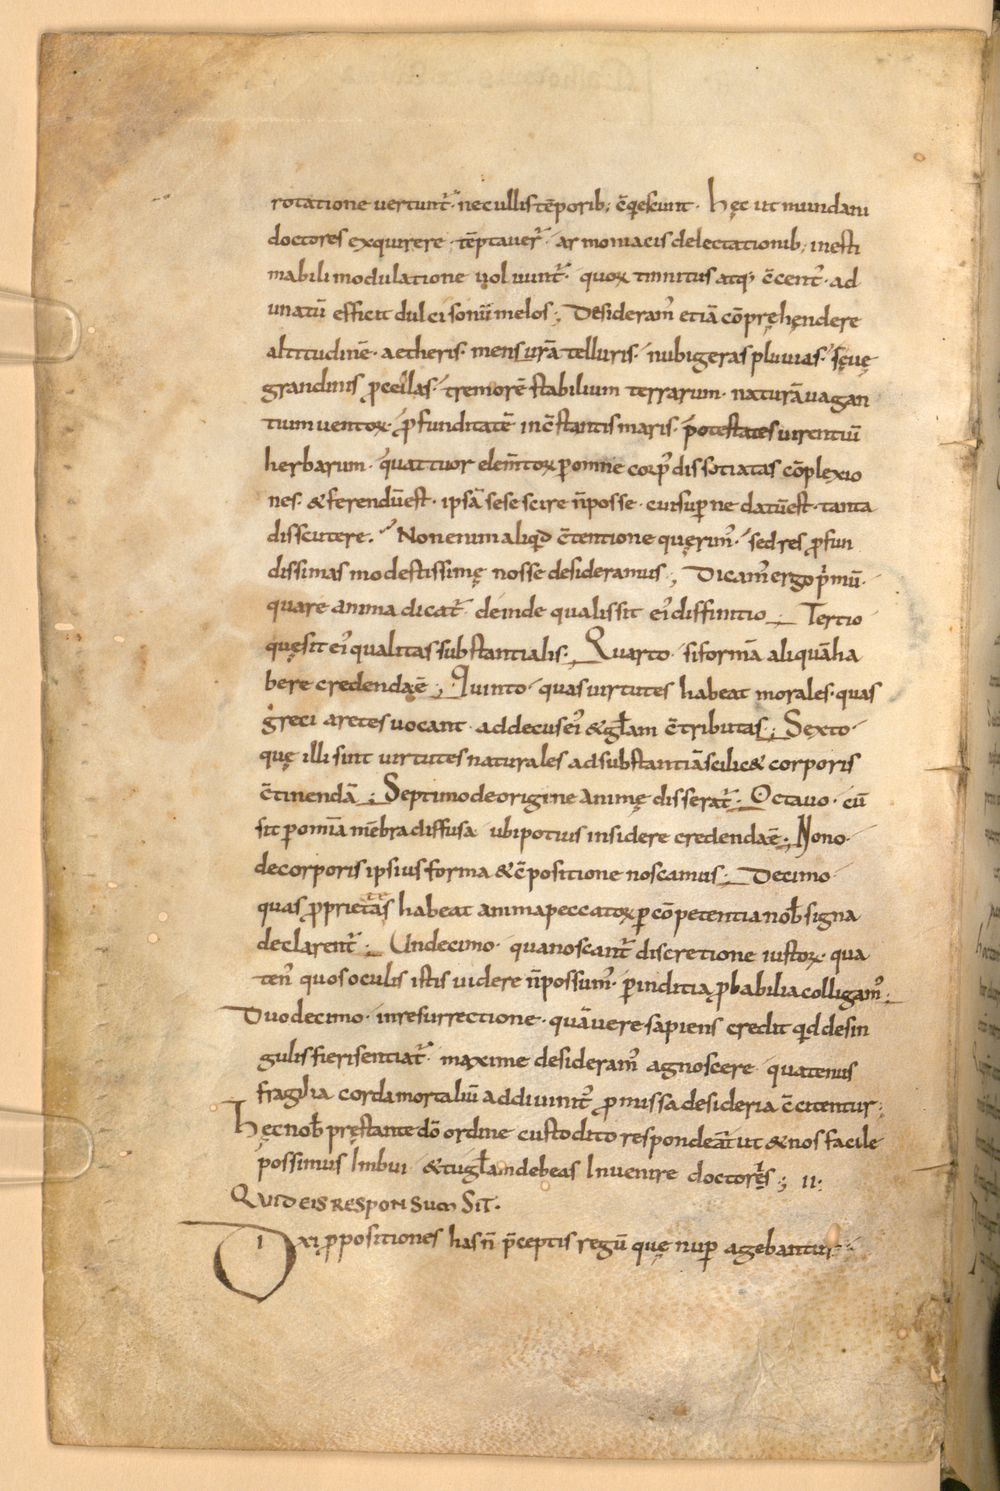 rotatione vertunt᷑· nec ullis tēporib; c̄qescunt· hęc ut mundani
doctores exquirere tēptaver᷑ armoniacis delectationib; inesti
mabili modulatione uoluunt᷑· quoꝝ tinnitus atq; c̄cent᷒· ad
unatū efficit dulcisonū melos; Desideram᷒ etiā cōpręhendere
altitudinē· aetheris· mensurā telluris· nubigeras pluvias· sęvę
grandinis ꝓcellas· tremorē stabilium terrarum· naturā vagan
tium ventoꝝ· ꝓfunditatē inc̄stantis maris· potestates virentiū
herbarum· quattuor elem̄toꝝ ꝑ omne corp᷒ dissotiatas cōplexio
nes· & ferendū est· ipsā sese scire n̄ posse· cui suꝑne datū est· tanta
discutere. Non enim aliqđ c̄tentione quęrim᷒· sed res ꝓfun
dissimas modestissimę nosse desideramus; Dicam᷒ ergo p̄mū·
quare anima dicat᷑· deinde qualis sit ei᷒ diffinitio; Tertio
quę sit ei᷒ qualitas substantialis· Quarto· si formā aliquā ha
bere credenda ē; Quinto· quas virtutes habeat morales· quas
greci aretes vocant· ad decus ei᷒ & głam c̄tributas; Sexto·
quę illi sint virtutes naturales ad substantiā scilic& corporis
c̄tinendā; Septimo de origine animę disserat᷑· Octavo· cū
sit ꝑ om̄ia mēbra diffusa ubi potius insidere credenda ē; Nono·
de corporis ipsius forma & c̄positione noscamus; Decimo·
quas ꝓprietates habeat anima peccatoꝝ ꝑ cōpetentia nob̄ signa
declarent᷑; Undecimo· qua noscant᷑ discretione iustoꝝ· qua
ten᷒ quos oculis istis videre n̄ possum᷒· ꝑ inditia ꝓbabilia colligam᷒;
Duodecimo· in resurrectione· quā vere sapiens credit qđ de sin
gulis fieri sentiat᷑· maxime desideram᷒ agnoscere quatenus
fragilia corda mortaliū ad divinit᷒ ꝓmissa desideria c̄citentur;
hęc nob̄ pręstante dō ordine custodito respondeāt ut & nos facile
possimus Imbui & tu głanda debeas Invenire doctores; II·
QUID EIS RESPONSUM SIT·
DIxi ꝓpositiones has n̄ p̄ceptis regū quę nuꝑ agebantur